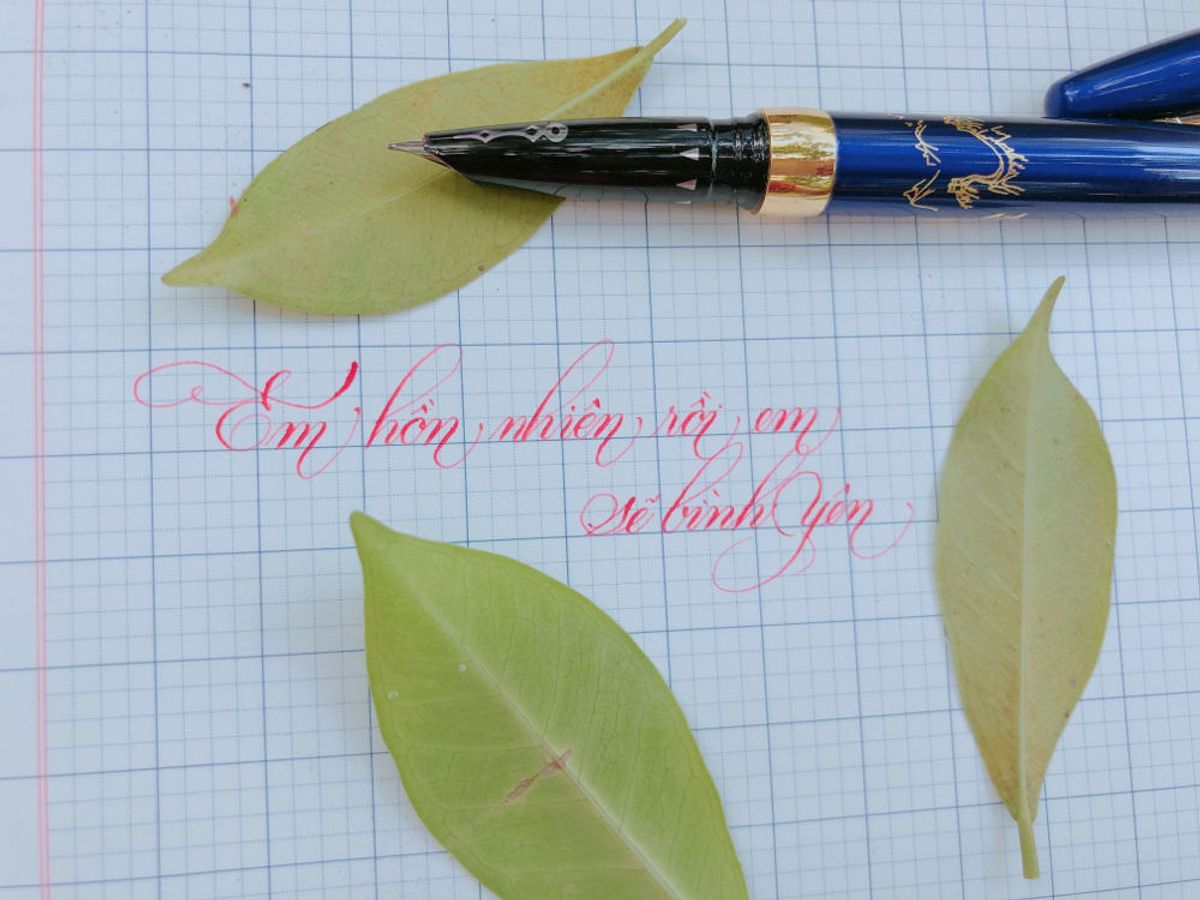 Em hồn nhiên rồi em
sẽ bình yên